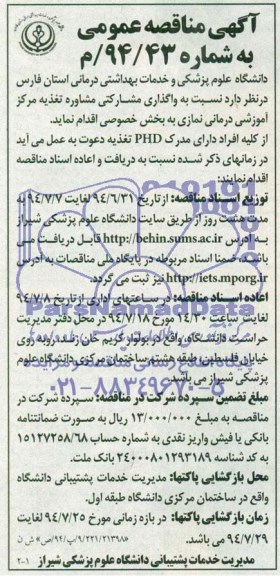 آگهی مناقصه عمومی
به شماره ۹۴/۴۳/م
دانشگاه علوم پزشکی و خدمات بهداشتی درمانی استان فارس
درنظر دارد نسبت به واگذاری مشارکتی مشاوره تغذیه مرکز
آموزشی درمانی نمازی به بخش خصوصی اقدام نماید.
از کلیه افراد دارای مدرک PHD تغذیه دعوت به عمل می آید
در زمانهای ذکر شده نسبت به دریافت و اعاده اسناد مناقصه
اقدام نمایند:
توزیع اسناد مناقصه: از تاریخ ۹۴/۶/۳۱ لغایت ۹۴/۷/۷ به
مدت هشت روز از طریق سایت دانشگاه علوم پزشکی شیراز
به آدرس http://behin.sums.ac.ir قابل دریافت می
باشد، ضمنا اسناد مربوطه در پایگاه ملی مناقصات به آدرس
http://iets.mporg.ir نیز ثبت می گردد.
اعاده اسناد مناقصه: در ساعتهای اداری از تاریخ ۹۴/۷/۸
لغایت ساعت ۱۴/۳۰ مورخ ۹۴/۷/۱۸ در محل دفتر مدیریت
حراست دانشگاه واقع در بولوار کریم خان زند، روبه روی
خیابان فلسطین طبقه هشتم ساختمان مرکزی دانشگاه علوم
پزشکی شیراز می باشد.
۰۲۱-۸۸۳۴۹۶۷۰-۵
مبلغ تضمین سپرده شرکت در مناقصه: سپرده شرکت در
مناقصه به مبلغ ۱۳/۰۰۰/۰۰۰ ریال به صورت ضمانتنامه
بانکی یا فیش واریز نقدی به شماره حساب ۱۵۱۲۷۲۵۸/۶۸
به کد شناسه ۲۴۰۰۰۸۰۱۲۹۳۱۸۹ بانک ملت.
محل بازگشایی پاکتها: مدیریت خدمات پشتیبانی دانشگاه
واقع در ساختمان مرکزی دانشگاه طبقه اول.
زمان بازگشایی پاکتها: در بازه زمانی مورخ ۹۴/۷/۲۵ لغایت
۹۴/۷/۲۹ می باشد.
مدیریت خدمات پشتیبانی دانشگاه علوم پزشکی شیراز
۲-۱